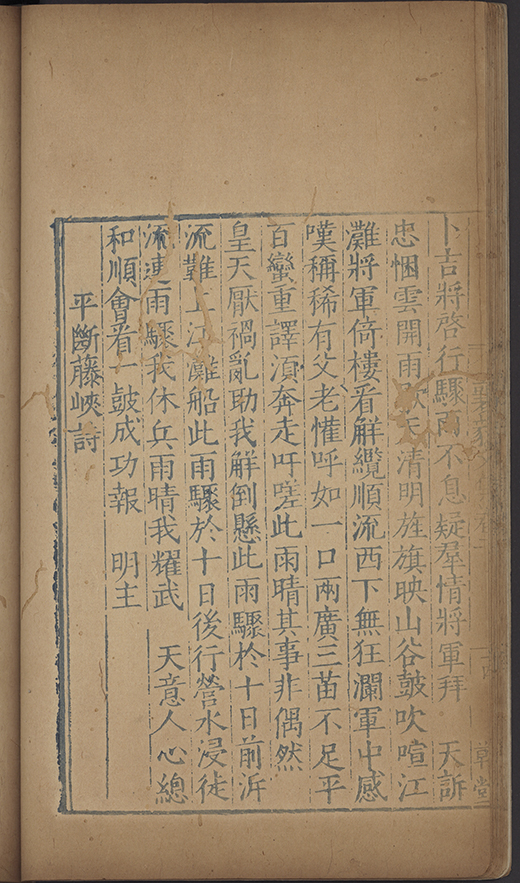 卜吉將啓行驟雨不息疑羣情將軍拜　天訴
忠悃雲開雨歇天清明旌旗映山谷鼓吹喧江
灘將軍倚樓看解纜順流西下無狂瀾軍中感
嘆稱稀有父老懽呼如一口兩廣三苗不足平
百蠻重譯湏奔走吁嗟此雨晴其事非偶然
皇天厭禍亂助我解倒懸此雨驟於十日前泝
流難上江灘船此雨驟於十日後行營水浸徒
流連雨驟我休兵雨晴我耀武　天意人心總
和順會看一鼓成功報　明主
平斷藤峽詩